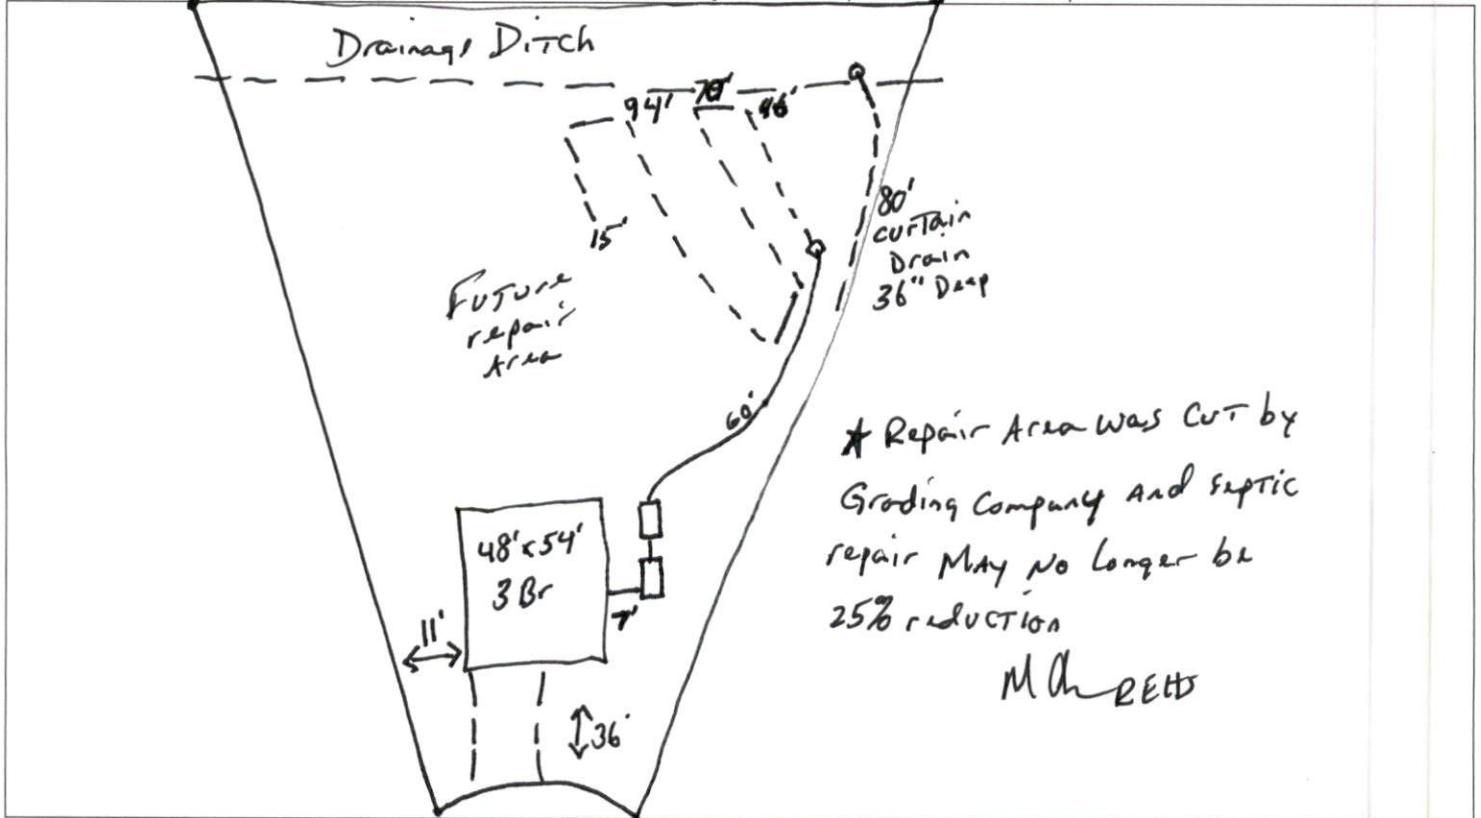 Drainage Ditch
94' 70' 46'
15'
80'
curtain
Drain
36" Deep
Future
repair
Area
60'
48' x 54'
3 Br
7'
11'
36'
* Repair Area was cut by
Grading Company and septic
repair May No Longer be
25% reduction
REHS